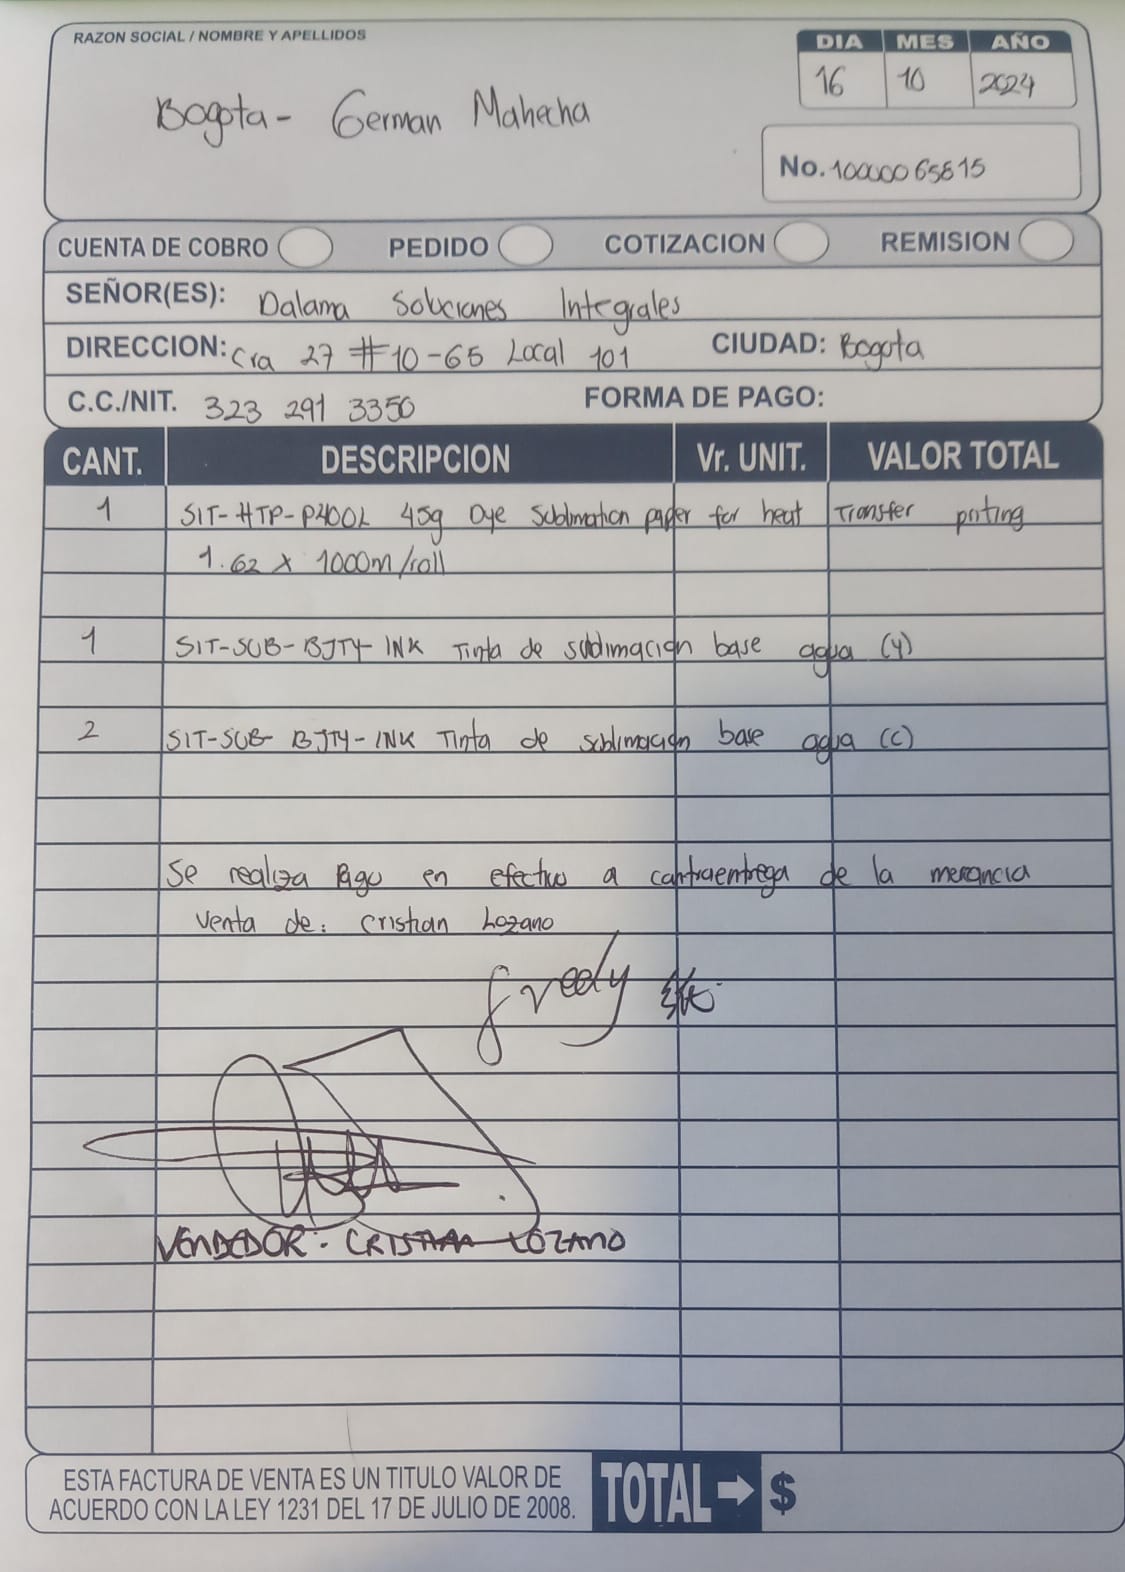 RAZON SOCIAL / NOMBRE Y APELLIDOS
DIA MES AÑO
16 10 2024
Bogota- German Mahecha
No. 10000065815
CUENTA DE COBRO PEDIDO COTIZACION REMISION
SEÑOR(ES): Dalama Soluciones Integrales
DIRECCION: Cra 27 #10-65 Local 101 CIUDAD: Bogota
C.C./NIT. 323 291 3350 FORMA DE PAGO:
CANT. DESCRIPCION Vr. UNIT. VALOR TOTAL
1 SIT-HTP-P400L 45g Dye Sublimation paper for heat Transfer priting
1.62 x 1000m/roll
1 SIT-SUB-BJTY-INK Tinta de sublimación base agua (Y)
2 SIT-SUB-BJTY-INK Tinta de sublimación base agua (C)
Se realiza Pago en efectivo a contraentrega de la merancia
Venta de: Cristian Lozano
VENDEDOR. CRISTIAN LOZANO
ESTA FACTURA DE VENTA ES UN TITULO VALOR DE
ACUERDO CON LA LEY 1231 DEL 17 DE JULIO DE 2008.
TOTAL → $